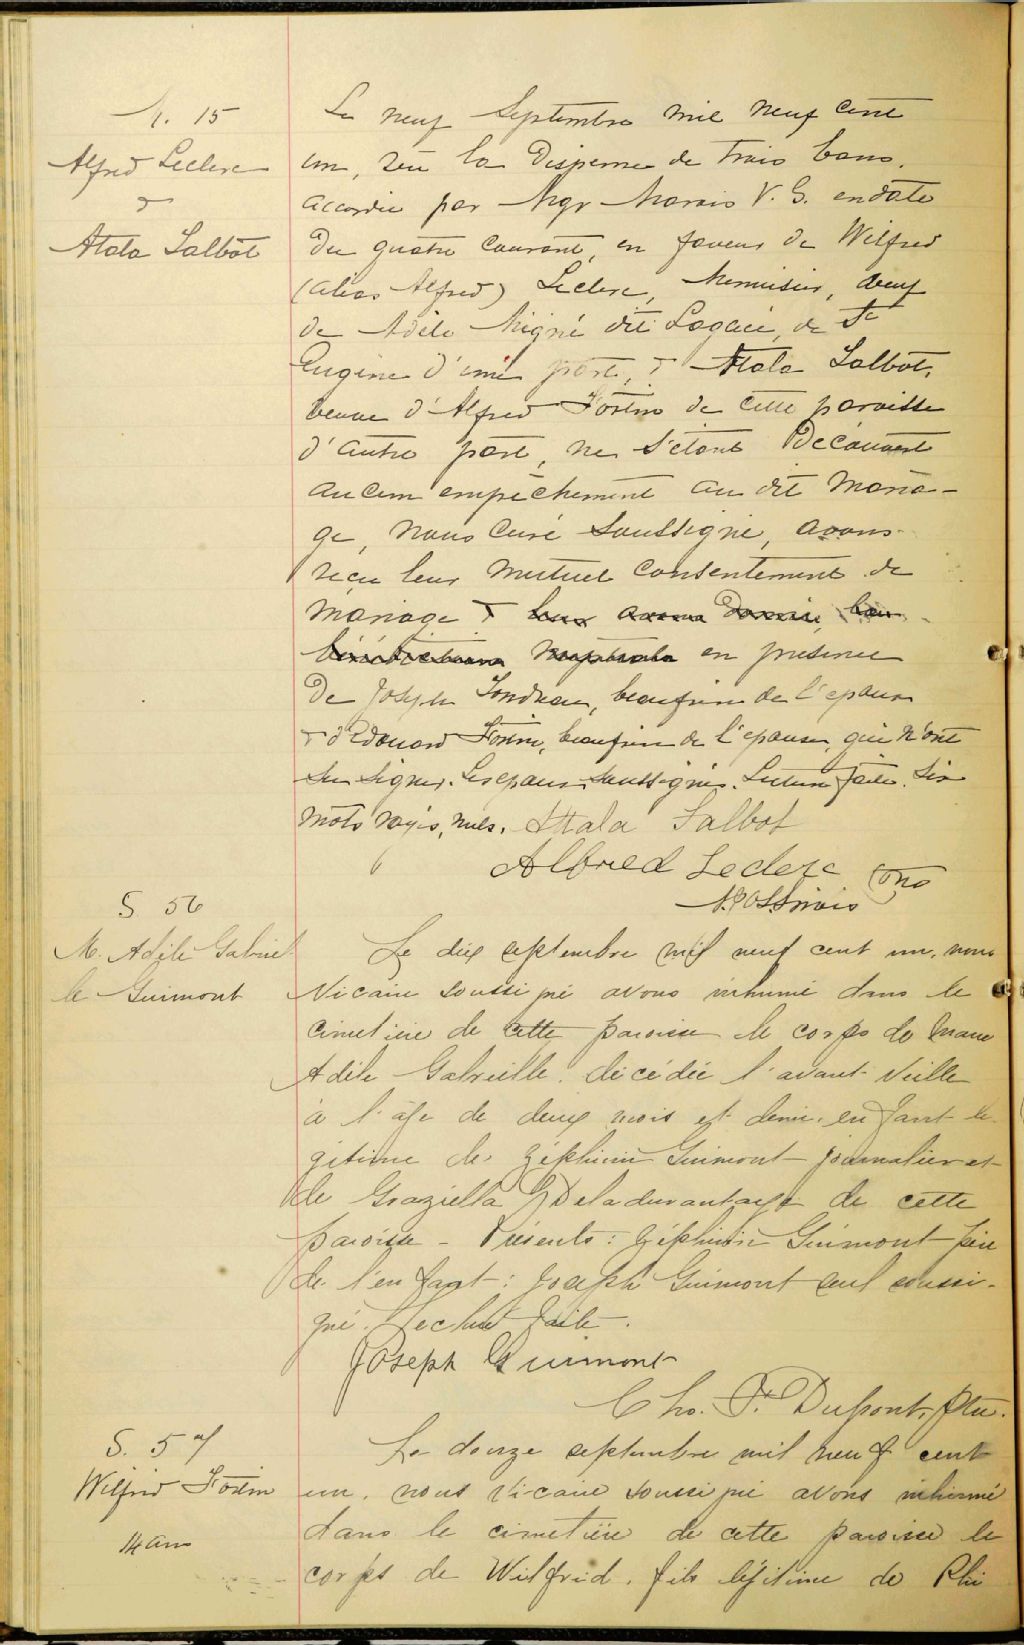 M. 15
Alfred Leclerc
&
Atala Talbot
Le neuf Septembre mil neuf cent
un, vu la dispense de trois bans,
accordée par Mgr Marois V. G. en date
du quatre courant, en faveur de Wilfred
(alias Alfred) Leclerc, Menuisier, veuf
de Adèle Migné dit Lagacé, de St
Eugène d'une part, & Atala Talbot,
veuve d'Alfred Fortin de cette paroisse
d'autre part, ne s'étant découvert
aucun empêchement au dit maria-
ge, nous curé soussigné, avons
reçu leur mutuel consentement de
mariage & leur avons donné la
bénédiction nuptiale en présence
de Joseph Tondreau, beaufrère de l'époux
& d'Edouard Fortin, beaufrère de l'épouse, qui n'ont
su signer. Les époux soussignés. Lecture faite. Six
mots rayés, nuls. Attala Talbot
Alfred Leclerc
S 56
M. Adèle Gabriel-
le Guimont
Le dix septembre mil neuf cent un, nous
Vicaire soussigné avons inhumé dans le
cimetière de cette paroisse le corps de Marie
Adèle Gabrielle, décédée l'avant-veille
à l'âge de deux mois et demi, enfant lé-
gitime de Zéphirin Guimont journalier et
de Graziella Deladurantaye de cette
paroisse - Présents: Zéphirin Guimont père
de l'enfant: Joseph Guimont seul soussi-
gné. Lecture faite.
Joseph Guimont
Chs. F. Dupont, ptre.
S. 57
Wilfrid Fortin
14 ans
Le douze septembre mil neuf cent
un, nous vicaire soussigné avons inhumé
dans le cimetière de cette paroisse le
corps de Wilfrid, fils légitime de Phi